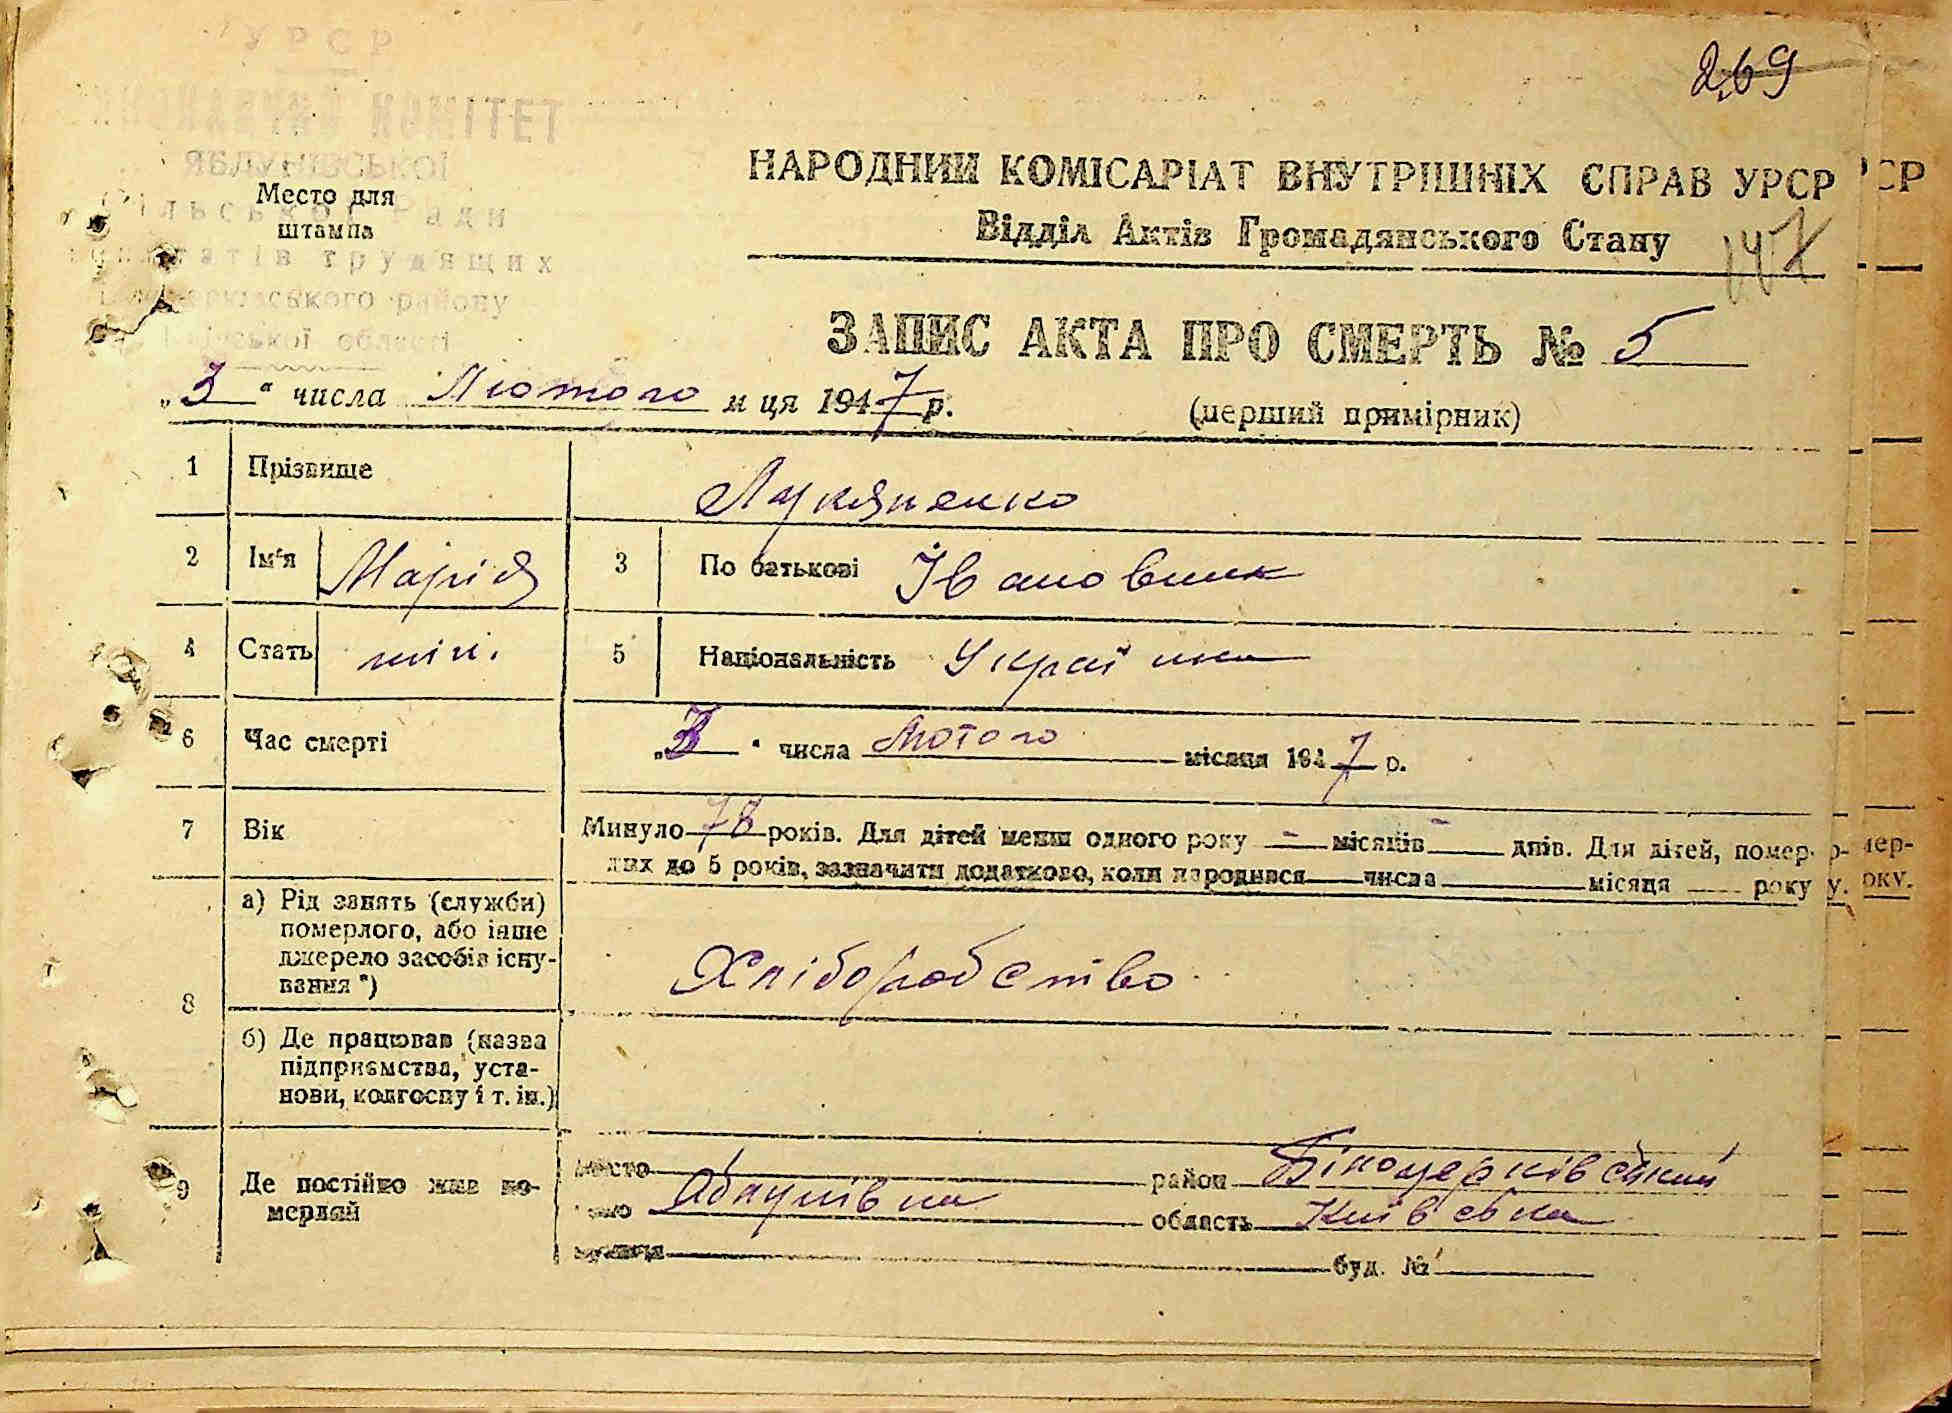 УРСР
КОМІТЕТ
ЯБЛУНІВСЬКОЇ
Сільської Ради
депутатів трудящих
району
області
269
Место для
штампа
НАРОДНИЙ КОМІСАРІАТ ВНУТРІШНІХ СПРАВ УРСР
Відділ Актів Громадянського Стану
147
ЗАПИС АКТА ПРО СМЕРТЬ № 5
„3“ числа Лютого м ця 1947 р.
(перший примірник)
1 Прізвище Лукяненко
2 Ім‘я Марія 3 По батькові Івановник
4 Стать жін. 5 Національність Українка
6 Час смерті „3“ числа Лютого місяця 1947 р.
7 Вік Минуло 78 років. Для дітей менш одного року - місяців - днів. Для дітей, помер-
лих до 5 років, зазначити додатково, коли народився числа місяця року
8 а) Рід занять (служби)
померлого, або інше
джерело засобів існу-
вання*)
Хліборобство
б) Де працював (назва
підприємства, уста-
нови, колгоспу і т. ін.)
9 Де постійно жив по-
мерлий
місто район Білоцерківський
Яблунівка область Київська
вулиця буд. №